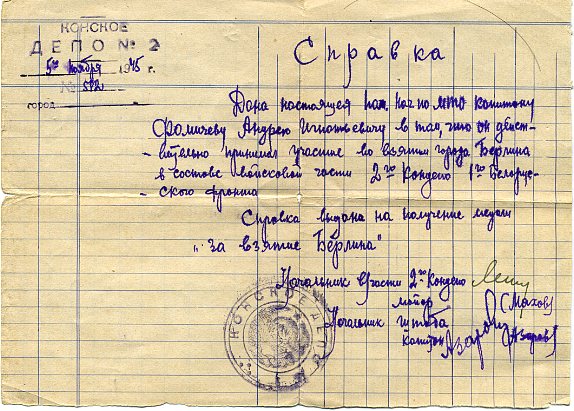 КОНСКОЕ
ДЕПО № 2
5го ноября 1945 г.
№ 572
город
Справка
Дана настоящая пом. нач по МТО капитану
Фомичеву Андрею Игнатьевичу в том, что он дейст-
- вительно принимал участие во взятии города Берлина
в составе войсковой части 2го Кондепо 1го Белорус-
- ского фронта
Справка выдана на получение медали
„за взятие Берлина"
Начальник части 2го Кондепо
майор (Махов)
Начальник штаба
капитан Азаров (Азаров)
КОНСКОЕ ДЕПО